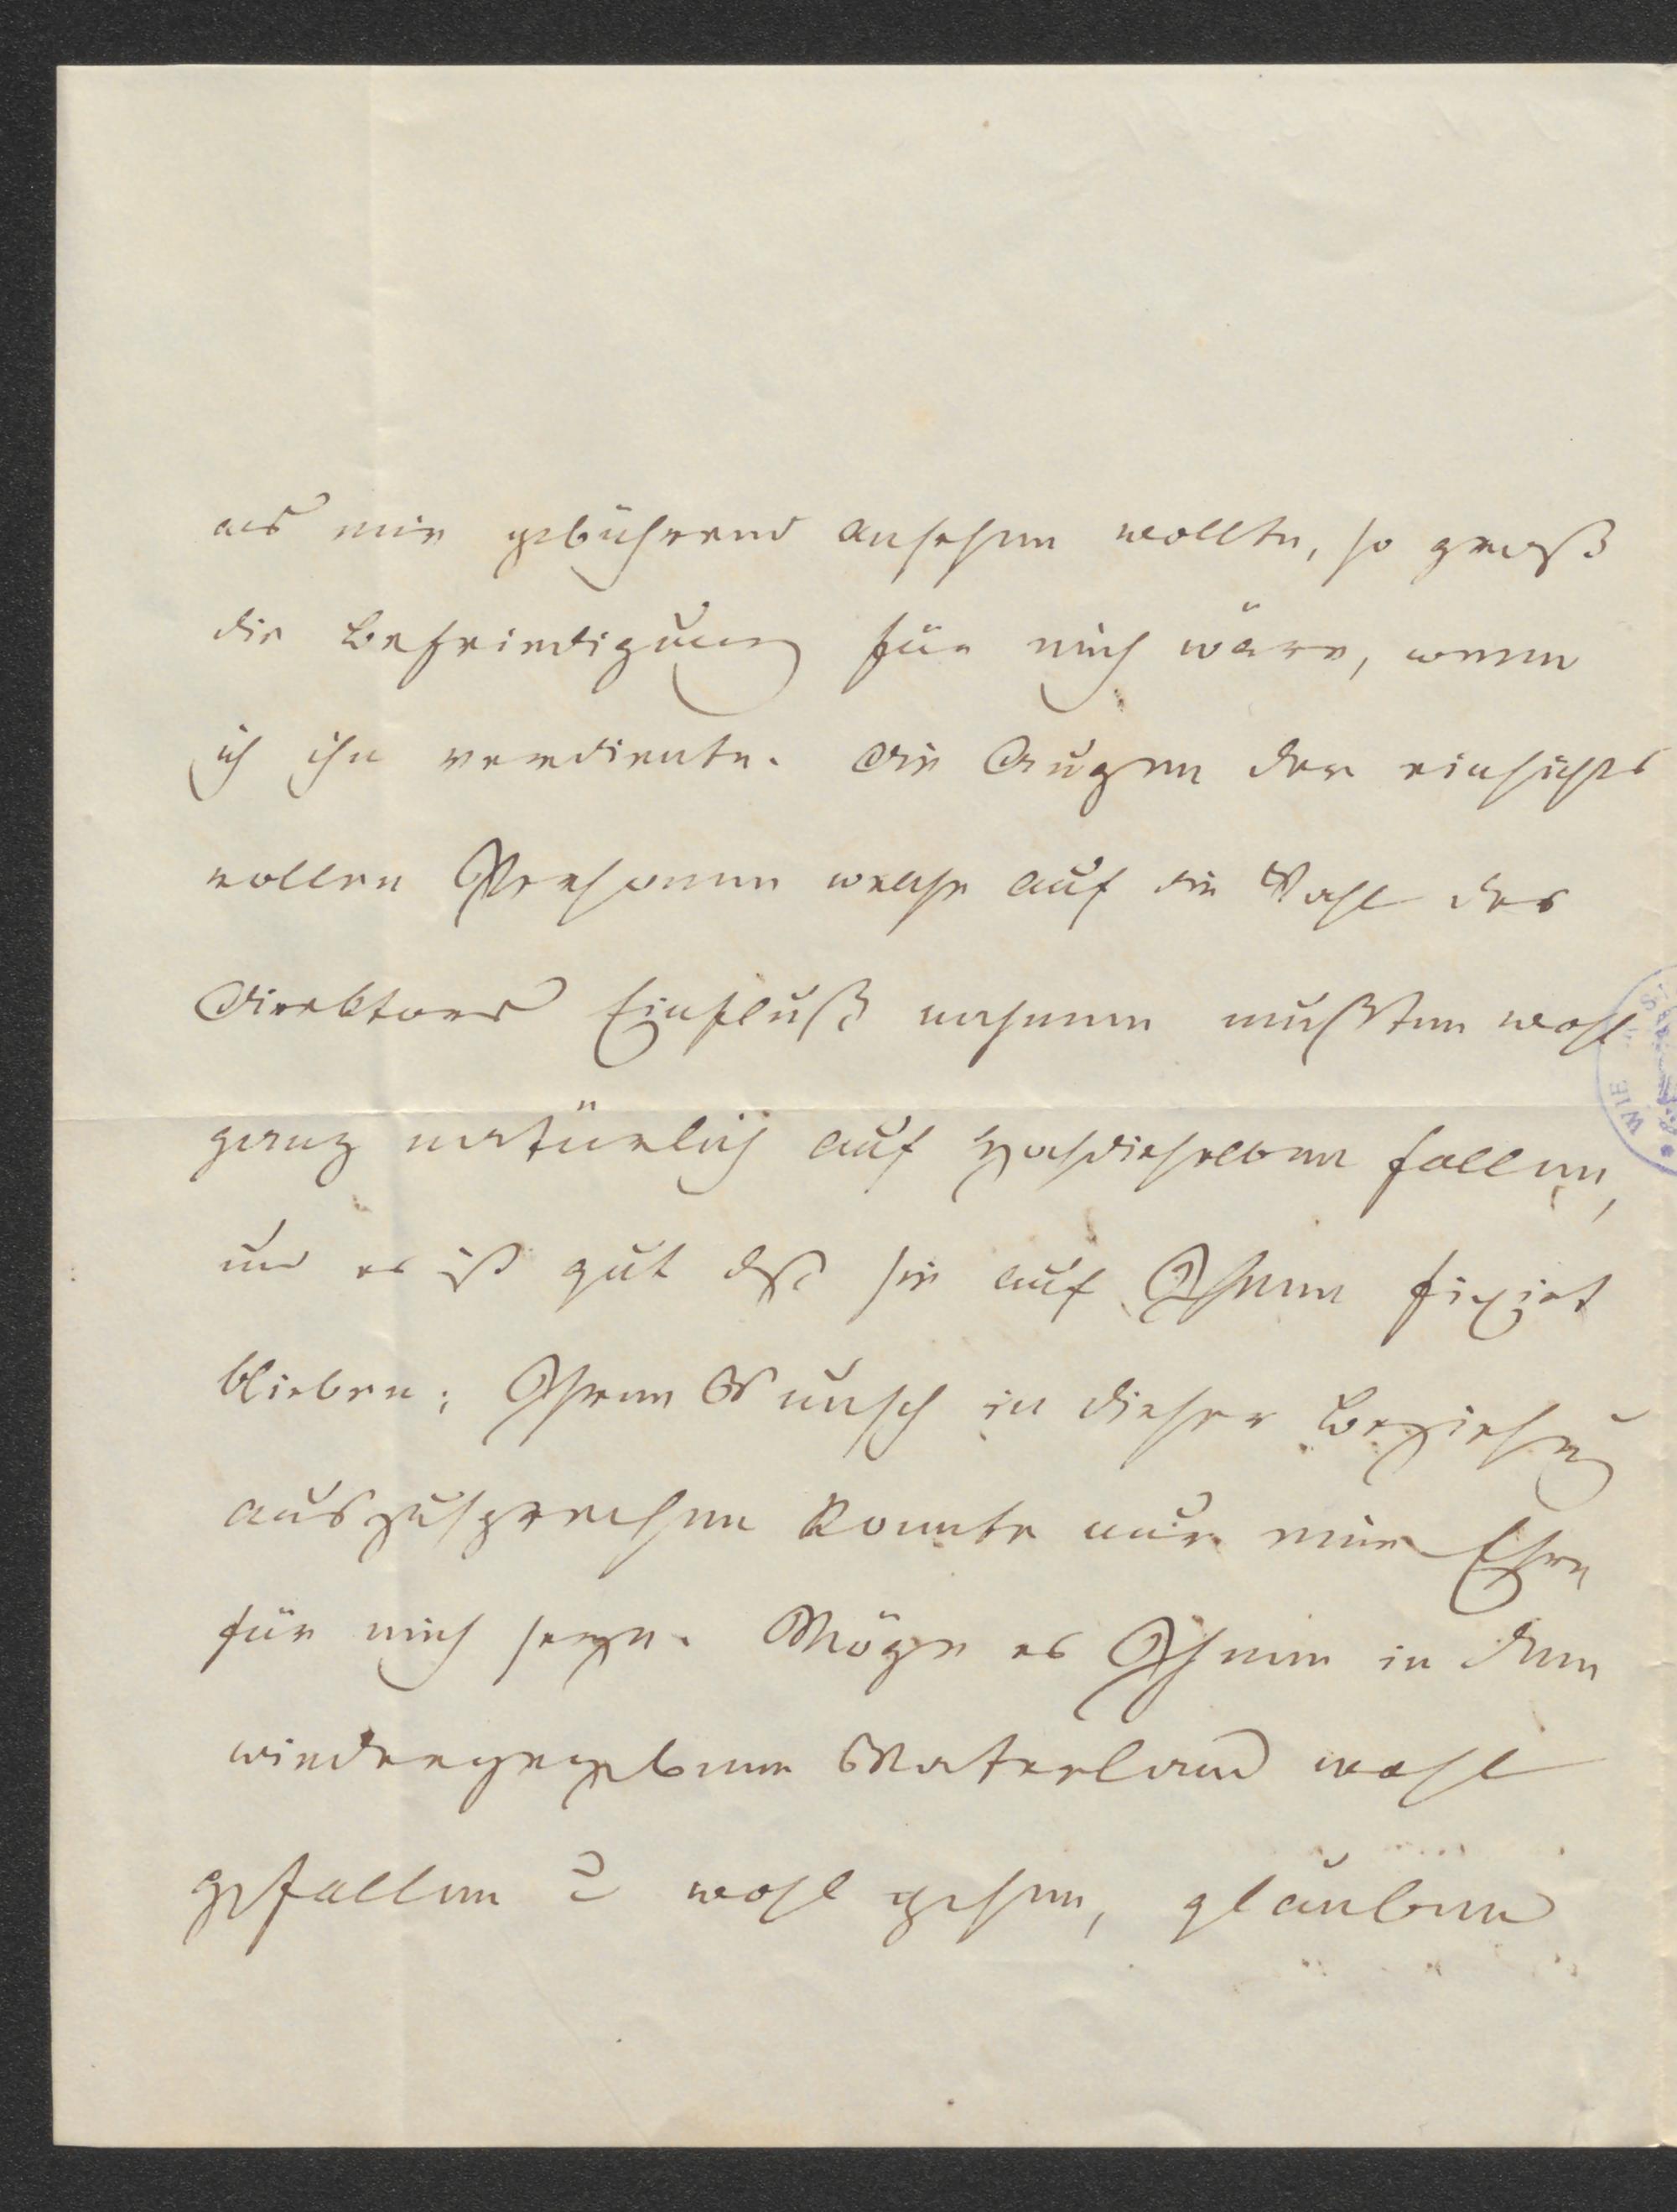 als mir gebührend ansehen wollte, so groß
die Befriedigung für mich wäre, wenn
ich ihn verdiente. Die Augen der einsichts
vollen Personen welche auf die Wahl des
Direktors Einfluß nahmen mußten wohl
ganz natürlich auf Hochdieselben fallen,
und es ist gut daß sie auf Ihnen fixirt
blieben; Ihren Wunsch in dieser Beziehung
auszusprechen konnte nur eine Ehre
für mich seyn. Möge es Ihnen in dem
wiedergegebenen Vaterland wohl
gefallen & wohl gehen, glauben
WIE